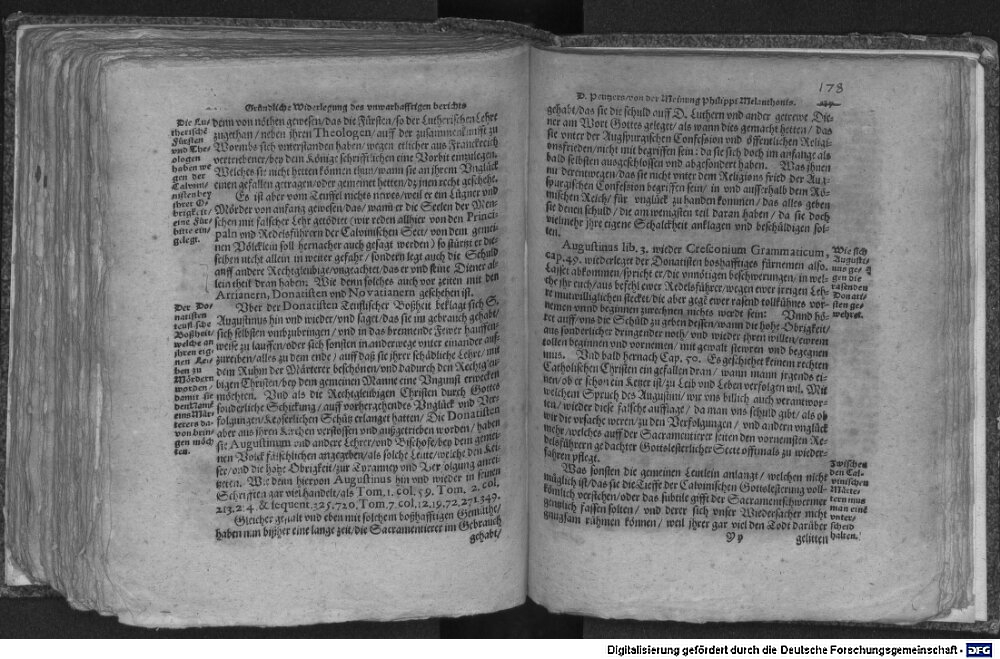 Gründliche Widerlegung des unwarhafftigen berichts
Die Lu-
therische
Fürsten
und The-
ologen
haben we
gen der
Calvini-
nsten bey
jhrer O-
brigkeit/
eine Für
bitte ein-
gelegt.
denn von nöthen gewesen/das die Fürsten/so der Lutherischen Lehre
zugethan/neben jhren Theologen/auff der zusammenkunfft zu
Wormbs sich unterstanden haben/wegen etlicher aus Franckreich
vertriebener/bey dem Könige schrifftlichen eine Vorbit einzulegen.
Welches sie nicht hetten können thun/wann sie an jhrem Unglück
einen gefallen getragen/oder gemeinet hetten/dz jnen recht geschehe.
Es ist aber vom Teuffel nichts newes/weil er ein Lügner und
Mörder von anfang gewesen/das/wann er die Seelen der Men-
schen mit falscher Lehr getödtet (wir reden allhier von den Princi-
paln und Redelsführern der Calvinischen Sect/von dem gemei-
nen Völcklein soll hernacher auch gesagt werden) so stürtzt er die-
selben nicht allein in weiter gefahr/sondern legt auch die Schuld
auff andere Rechtgleubige/ungeachtet/das er und seine Diener al-
lein theil dran haben. Wie denn solches auch vor zeiten mit den
Arrianern, Donatisten und Novatianern geschehen ist.
Der Do-
natisten
teuflische
Boßheit/
welche an
jhren eig-
nen Lei-
ben zu
Mördern
worden/
damit sie
den Namẽ
eins Mär-
terers da-
von brin-
gen möch
ten.
Uber der Donatisten Teuflischer Boßheit beklagt sich S.
Augustinus hin und wieder/und saget/das sie im gebrauch gehabt/
sich selbsten umbzubringen/und in das brennende Fewer hauffen-
weise zu lauffen/oder sich sonsten in anderwege unter einander auff-
zureiben/alles zu dem ende/auff daß sie jhrer schädliche Lehre/mit
dem Ruhm der Märterer beschönen/und dadurch den Rechtgleu-
bigen Christen/bey dem gemeinen Manne eine Ungunst erwecken
möchten. Und als die Rechtgleubigen Christen durch Gottes
sonderliche Schickung/auff vorhergehendes Unglück und Ver-
folgungen/Keyserlichen Schutz erlanget hatten/Die Donatisten
aber aus jhren Kirchen verstossen und außgetrieben worden/haben
sie Augustinum und andere Lehrer/und Bischofe/bey dem gemei-
nen Volck fälschlichen angegeben/als solche Leute/welche den Kei-
ser/und die hohe Obrigkeit/zur Tyranney und Verfolgung anrei-
tzeten. Wie denn hiervon Augustinus hin und wieder in seinen
Schrifften gar viel handelt/als Tom. 1. col. 59. Tom. 2. col.
213.214. & sequent. 325.720. Tom. 7. col. 12.19.72.271.349.
Gleicher gestalt und eben mit solchem boßhafftigen Gemüthe/
haben nun bißher eine lange zeit/die Sacramentierer im Gebrauch
gehabt/
178
D. Peucers/von der Meinung Philippi Melanthonis.
gehabt/das sie die schuld auff D. Luthern und ander getrewe Die-
ner am Wort Gottes geleget/als wann dies gemacht hetten/das
sie unter der Augspurgischen Confession und öffentlichen Religi-
onsfrieden/nicht mit begriffen sein: da sie sich doch im anfange als
bald selbsten ausgeschlossen und abgesondert haben. Was jhnen
nu derentwegen/das sie nicht unter dem Religions fried der Au-
spurgischen Confession begriffen sein/in und ausserhalb dem Rö-
mischen Reich/für unglück zu handen kommen/das alles geben
sie denen schuld/die am wenigsten teil daran haben/da sie doch
vielmehr jhre eigne Schalckheit anklagen und beschüldigen sol-
ten.
Augustinus lib. 3. wieder Cresconium Grammaticum,
cap. 49. wiederlegt der Donatisten boshafftiges fürnemen also.
Lasset abkommen/spricht er/die unnötigen beschwerungen/in wel-
che jhr euch/aus befehl ewer Redelsführer/wegen ewer irrigen Leh-
re mutwilliglichen stecket/die aber gegẽ ewer rasend tollkühnes vor-
nemen unnd beginnen zurechnen nichts werde sein: Unnd hö-
ret auff/uns die Schüld zu geben dessen/wann die hohe Obrigkeit/
aus sonderlicher dringender noth/und wieder jhren willen/ewrem
tollen beginnen und vornemen/mit gewalt stewren und begegnen
mus. Und bald hernach Cap. 50. Es geschiehet keinem rechten
Catholischen Christen ein gefallen dran/wann mann jrgends ei-
nen/ob er schon ein Ketzer ist/zu Leib und Leben verfolgen wil. Mit
welchem Spruch des Augustini/wir uns billich auch verantwor-
ten/wieder diese falsche aufflage/da man uns schuld gibt/als ob
wir die ursache weren/zu den Verfolgungen/und andern unglück
mehr/welches auff der Sacramentirer seiten den vornemsten Re-
delsführern gedachter Gottslesterlicher Secte offtmals zu wieder-
fahren pflegt.
Wie sich
Augusti-
nus ge-
gen die
rasenden
Donati-
sten ge-
wehret.
Was sonsten die gemeinen Leutlein anlangt/welchen nicht
müglich ist/das sie die Tieffe der Calvinischen Gottslesterung voll-
kömlich verstehen/oder das subtile gifft der Sacramentschwermer
gentzlich fassen solten/und derer sich unser Wiedersacher nicht
gnugsam rühmen können/weil jhrer gar viel den Todt darüber
Zwischen
den Cal-
vinischen
Märte-
rern mus
man eine
unter-
scheid
halten.
Yy
gelitten
Digitalisierung gefördert durch die Deutsche Forschungsgemeinschaft - DFG